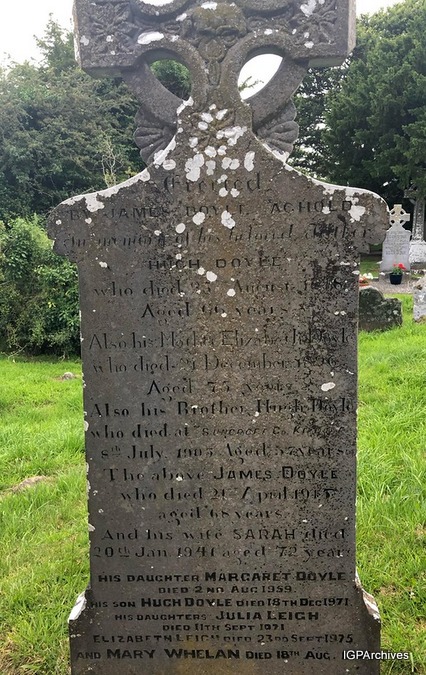 Erected
BY JAMES DOYLE AGHOLD
In memory of his beloved Father
HUGH DOYLE
who died 23 August
Aged 66 years
Also his Mother Elizabeth Doyle
who died 21 December
Aged 75 years
Also his Brother Hugh Doyle
who died at Co.
8th July 1905 Aged 57 years
The above JAMES DOYLE
who died 21 April
aged 68 years
And his wife SARAH died
20th Jan 1941 aged 72 years
HIS DAUGHTER MARGARET DOYLE
DIED 2ND AUG 1959
HIS SON HUGH DOYLE DIED 18TH DEC 1971
HIS DAUGHTERS JULIA LEIGH
DIED 11TH SEPT 1971
ELIZABETH LEIGH DIED 23RD SEPT 1975
AND MARY WHELAN DIED 18TH AUG.
IGPArchives